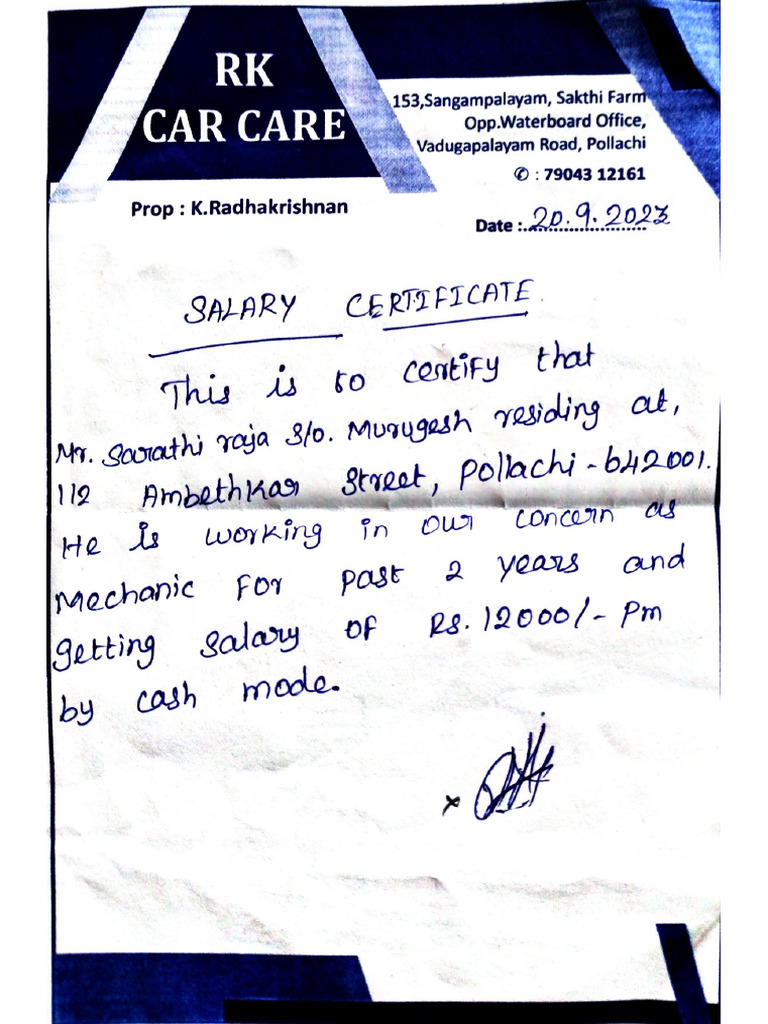 RK
CAR CARE
153,Sangampalayam, Sakthi Farm
Opp.Waterboard Office,
Vadugapalayam Road, Pollachi
✆ : 79043 12161
Prop : K.Radhakrishnan
Date : 20.9.2023
SALARY CERTIFICATE.
This is to certify that
Mr. Sarathi raja S/o. Murugesh residing at,
112 Ambethkar Street, Pollachi - 642001.
He is working in our concern as
Mechanic For past 2 years and
getting salary of Rs. 12000/- Pm
by cash mode.